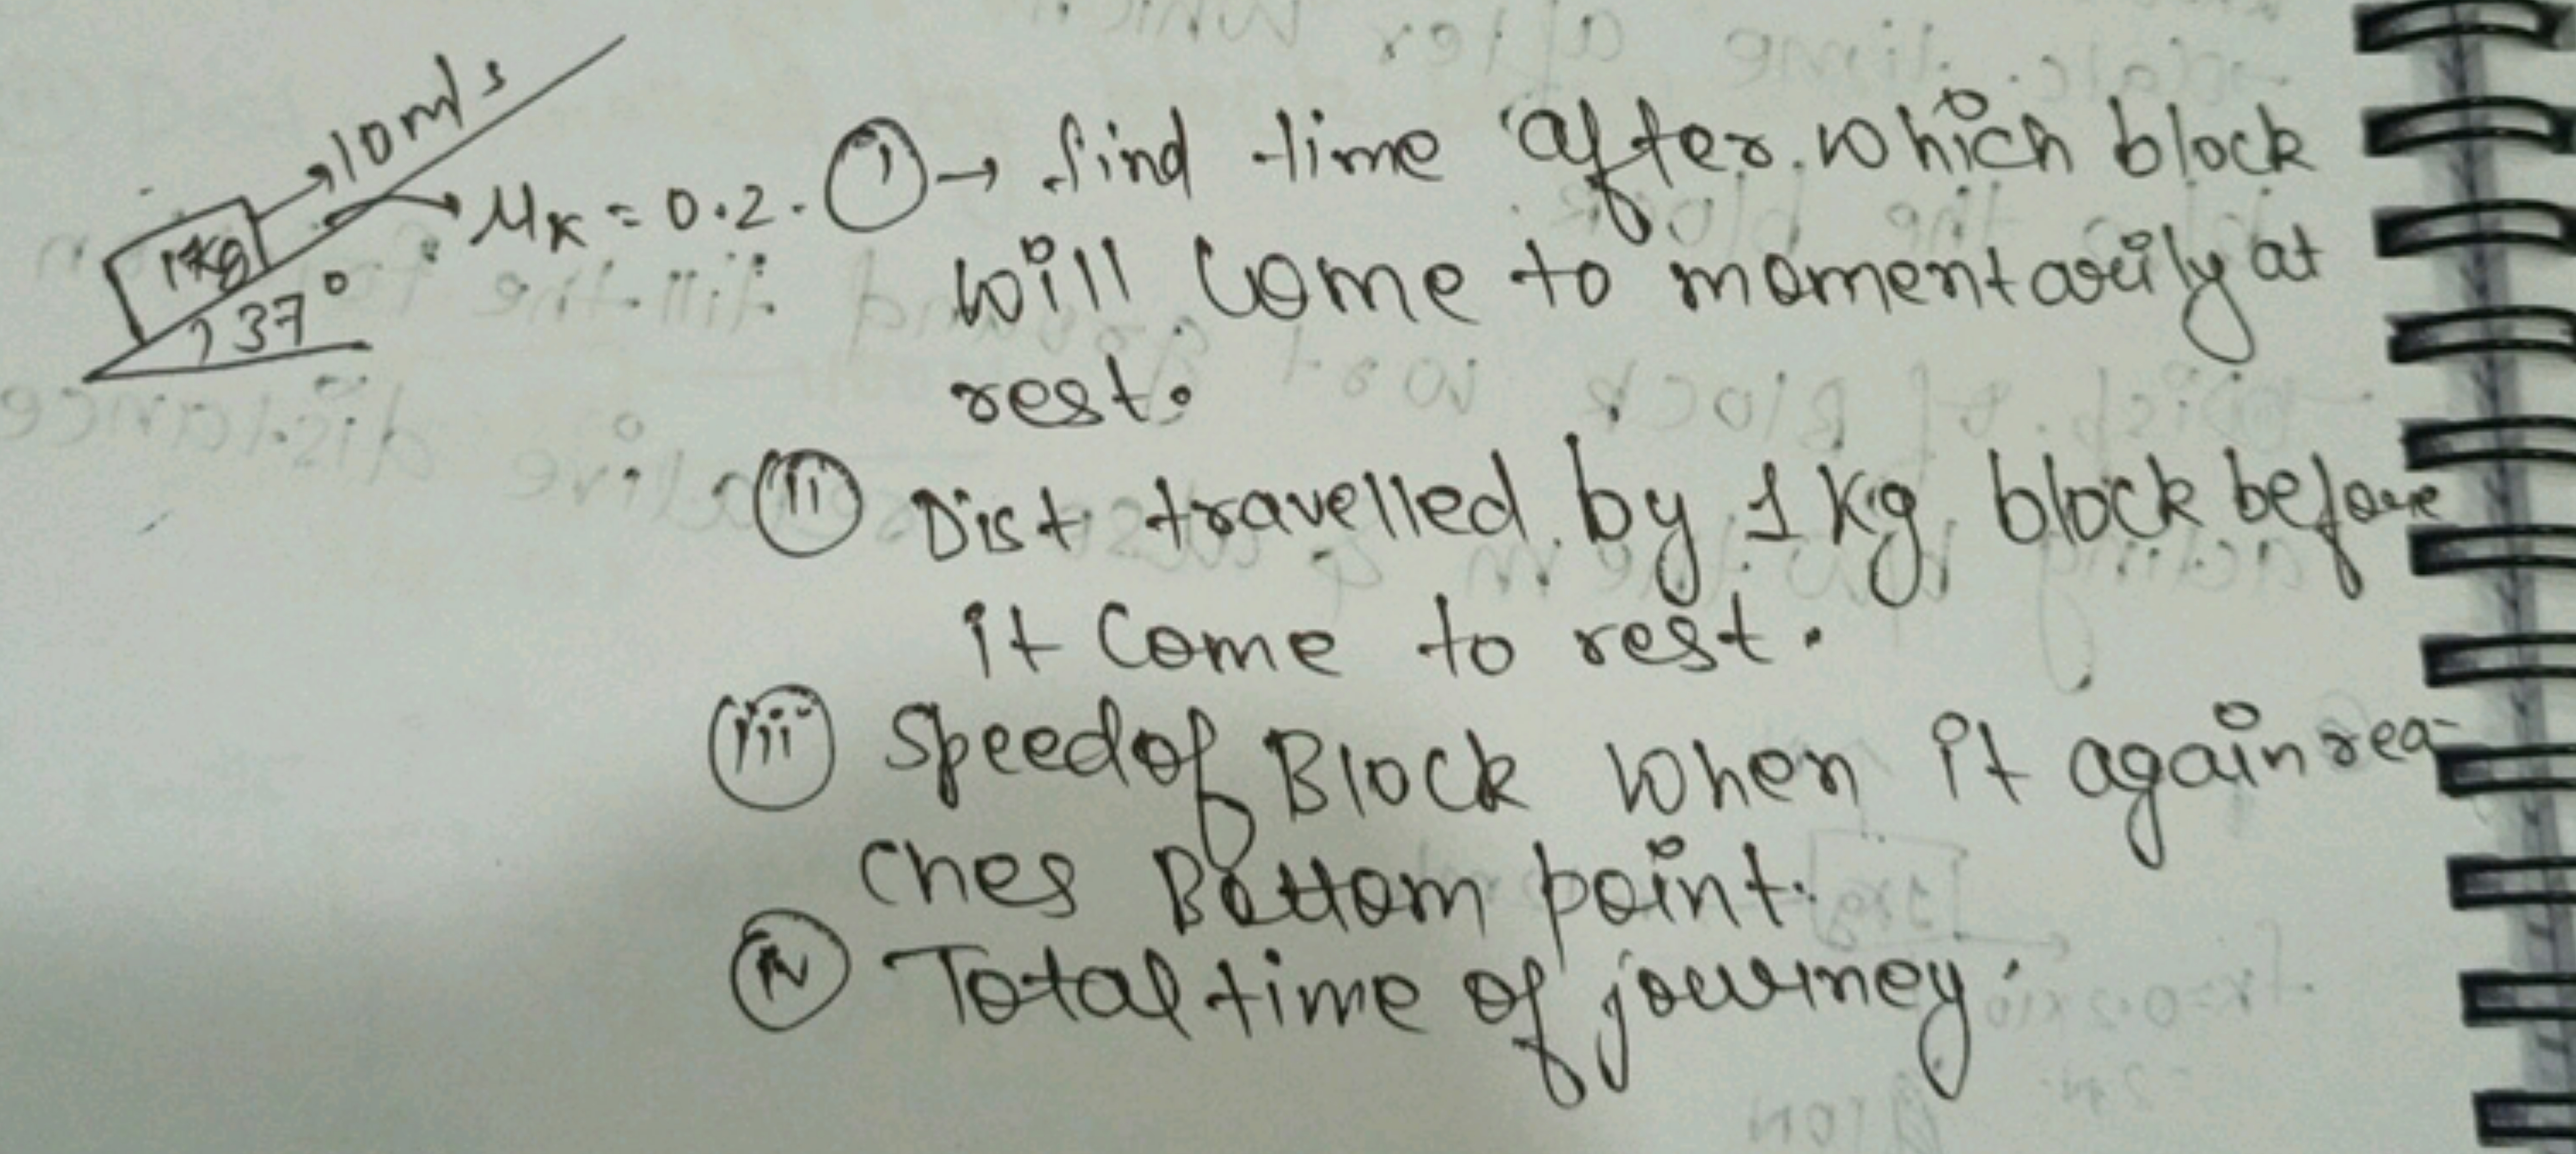 10m/s
1kg
37°
μk = 0.2.
(i) → find time after which block
will come to momentarily at
rest.
(ii) Dist travelled by 1 kg block before
it Come to rest.
(iii) Speed of Block when it again rea-
ches Bottom point.
(iv) Total time of journey.